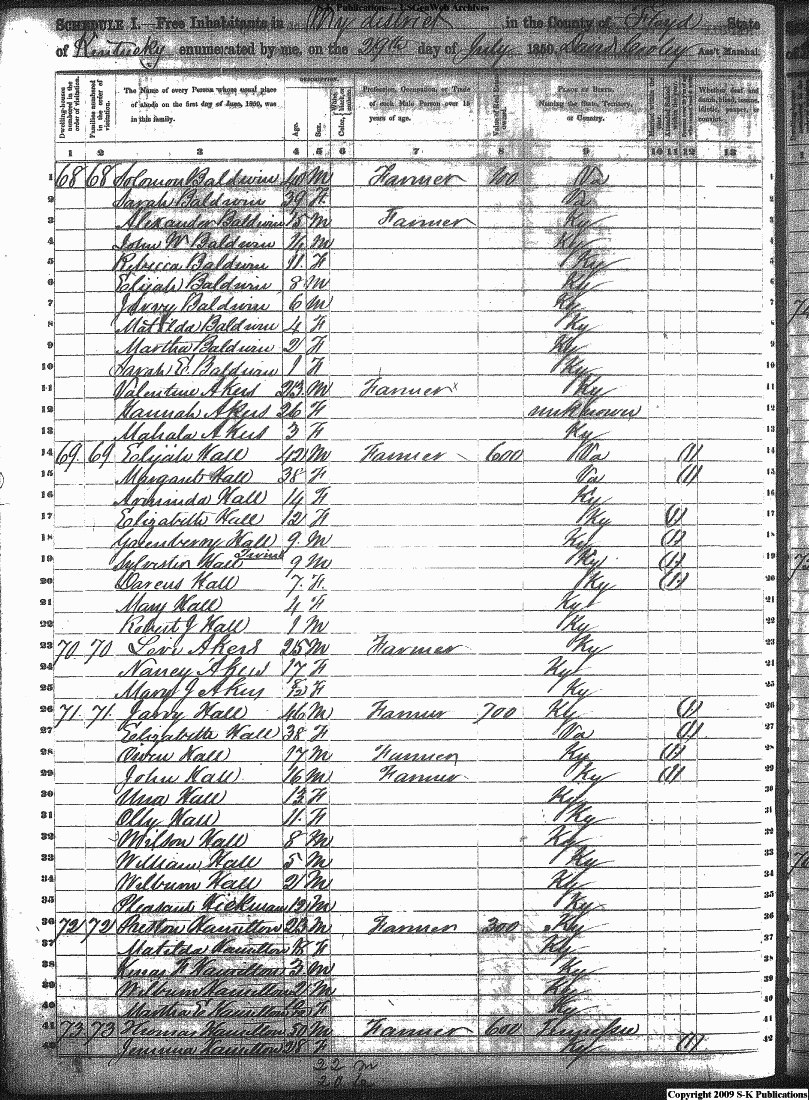 S-K Publications - USGenWeb Archives
SCHEDULE I.—Free Inhabitants in My district in the County of Floyd State
of Kentucky enumerated by me, on the 29th day of July 1850. David Cooley Ass't Marshal.
Dwelling-houses numbered in the order of visitation.
Families numbered in the order of visitation.
The Name of every Person whose usual place of abode on the first day of June, 1850, was in this family.
DESCRIPTION.
Age.
Sex.
Color, White, black, or mulatto.
Profession, Occupation, or Trade of each Male Person over 15 years of age.
Value of Real Estate owned.
PLACE OF BIRTH. Naming the State, Territory, or Country.
Married within the year.
Whether deaf and dumb, blind, insane, idiotic, pauper, or convict.
1 2 3 4 5 6 7 8 9 10 11 12 13
1 68 68 Solomon Baldwin 40 M Farmer 100 Va 1
2 Sarah Baldwin 39 F Va 2
3 Alexander Baldwin 15 M Farmer Ky 3
4 John W Baldwin 14 M Ky 4
5 Rebecca Baldwin 11 F Ky 5
6 Elijah Baldwin 8 M Ky 6
7 Baldwin 6 M Ky 7
8 Matilda Baldwin 4 F Ky 8
9 Martha Baldwin 2 F Ky 9
10 Sarah E Baldwin 1 F Ky 10
11 Valentine Akers 23 M Farmer Ky 11
12 Hannah Akers 26 F unknown 12
13 Mahala Akers 3 F Ky 13
14 69 69 Elijah Hall 42 M Farmer 600 Va (1) 14
15 Margaret Hall 38 F Va (1) 15
16 Hall 14 F Ky 16
17 Elizabeth Hall 12 F Ky (1) 17
18 Greenberry Hall 9 M Ky (1) 18
19 Sylvester Hall Twins 9 M Ky (1) 19
20 Darcus Hall 7 F Ky (1) 20
21 Mary Hall 4 F Ky 21
22 Robert J Hall 1 M Ky 22
23 70 70 Levi Akers 25 M Farmer Ky 23
24 Nancy Akers 17 F Ky 24
25 Mary J Akers F Ky 25
26 71 71 Jarry Hall 46 M Farmer 700 Ky (1) 26
27 Elizabeth Hall 38 F Va (1) 27
28 Owen Hall 17 M Farmer Ky (1) 28
29 John Hall 16 M Farmer Ky (1) 29
30 Una Hall 13 F Ky 30
31 Olly Hall 11 F Ky 31
32 Wilson Hall 8 M Ky 32
33 William Hall 5 M Ky 33
34 Wilburn Hall 2 M Ky 34
35 Pleasant Hickman 12 M Ky 35
36 72 72 Preston Hamilton 23 M Farmer 300 Ky 36
37 Matilda Hamilton 18 F Ky 37
38 Hamilton 3 M Ky 38
39 Wilburn Hamilton 2 M Ky 39
40 Martha E Hamilton F Ky 40
41 73 73 Thomas Hamilton 50 M Farmer 600 Tennessee 41
42 Jemima Hamilton 28 F Ky (1) 42
22 m
20
Copyright 2009 S-K Publications